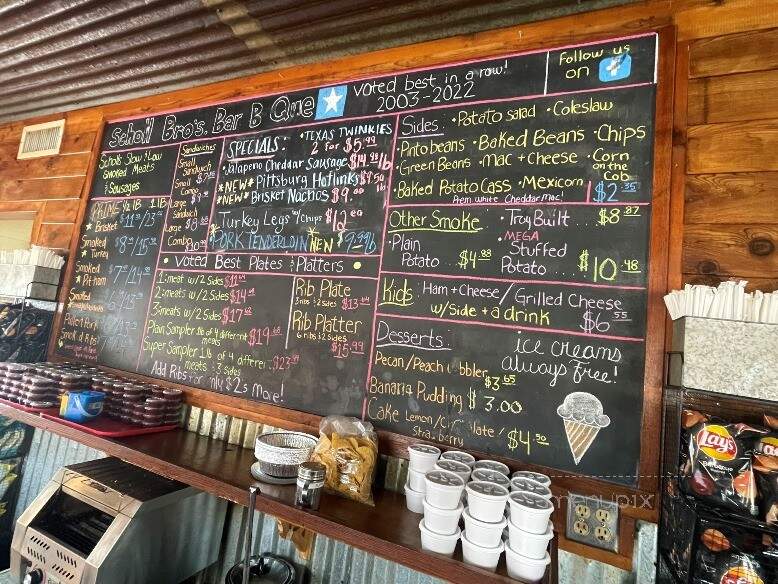 Scholl Bro's. Bar B Que
Voted best in a row!
2003-2022
Follow us
on
Scholls Slow & Low
Smoked Meats
& Sausages
PRIME 1/2 lB 1 lB
Brisket
Smoked
Turkey
Smoked
Pit-ham
Smoked
Pulled Pork
Smoked Ribs
Sandwiches
Small
Sandwich
Small
Combo
Large
Sandwich
Large
Combo
SPECIALS:
•TEXAS TWINKIES
2 for $5.99
•Jalapeno Cheddar Sausage $14.98 lb
*NEW* Pittsburg Hotlinks $9.50
*NEW* Brisket Nachos $9.00
Turkey Legs w/chips $12 ea
*PORK TENDERLOIN *NEW
• Voted Best Plates & Platters •
1 meat w/2 Sides
2 meats w/2 Sides
3 meats w/2 Sides
Plain Sampler 1lb of 4 different
meats
Super Sampler 1lb of 4 different
meats & 3 sides
Add Ribs for only $2's More!
Rib Plate
3 ribs & 2 sides
Rib Platter
6 ribs & 2 sides
$15.99
Sides: •Potato salad •Coleslaw
•Pinto beans •Baked Beans •Chips
•Green Beans •mac + Cheese •Corn
on the
Cob
•Baked Potato Cass •Mexicorn
Prem. White Cheddar Mac!
$2.35
Other Smoke
•Troy Built $8.87
•Plain
Potato $4.88
•MEGA
Stuffed
Potato $10.48
Kids: Ham + Cheese / Grilled Cheese
w/side + a drink
$6.55
Desserts:
Pecan/Peach Cobbler $3.65
Banana Pudding $3.00
Cake Lemon/
Strawberry $4.50
ice creams
always Free!
Lay's
Barbecue
Lay's
menupix